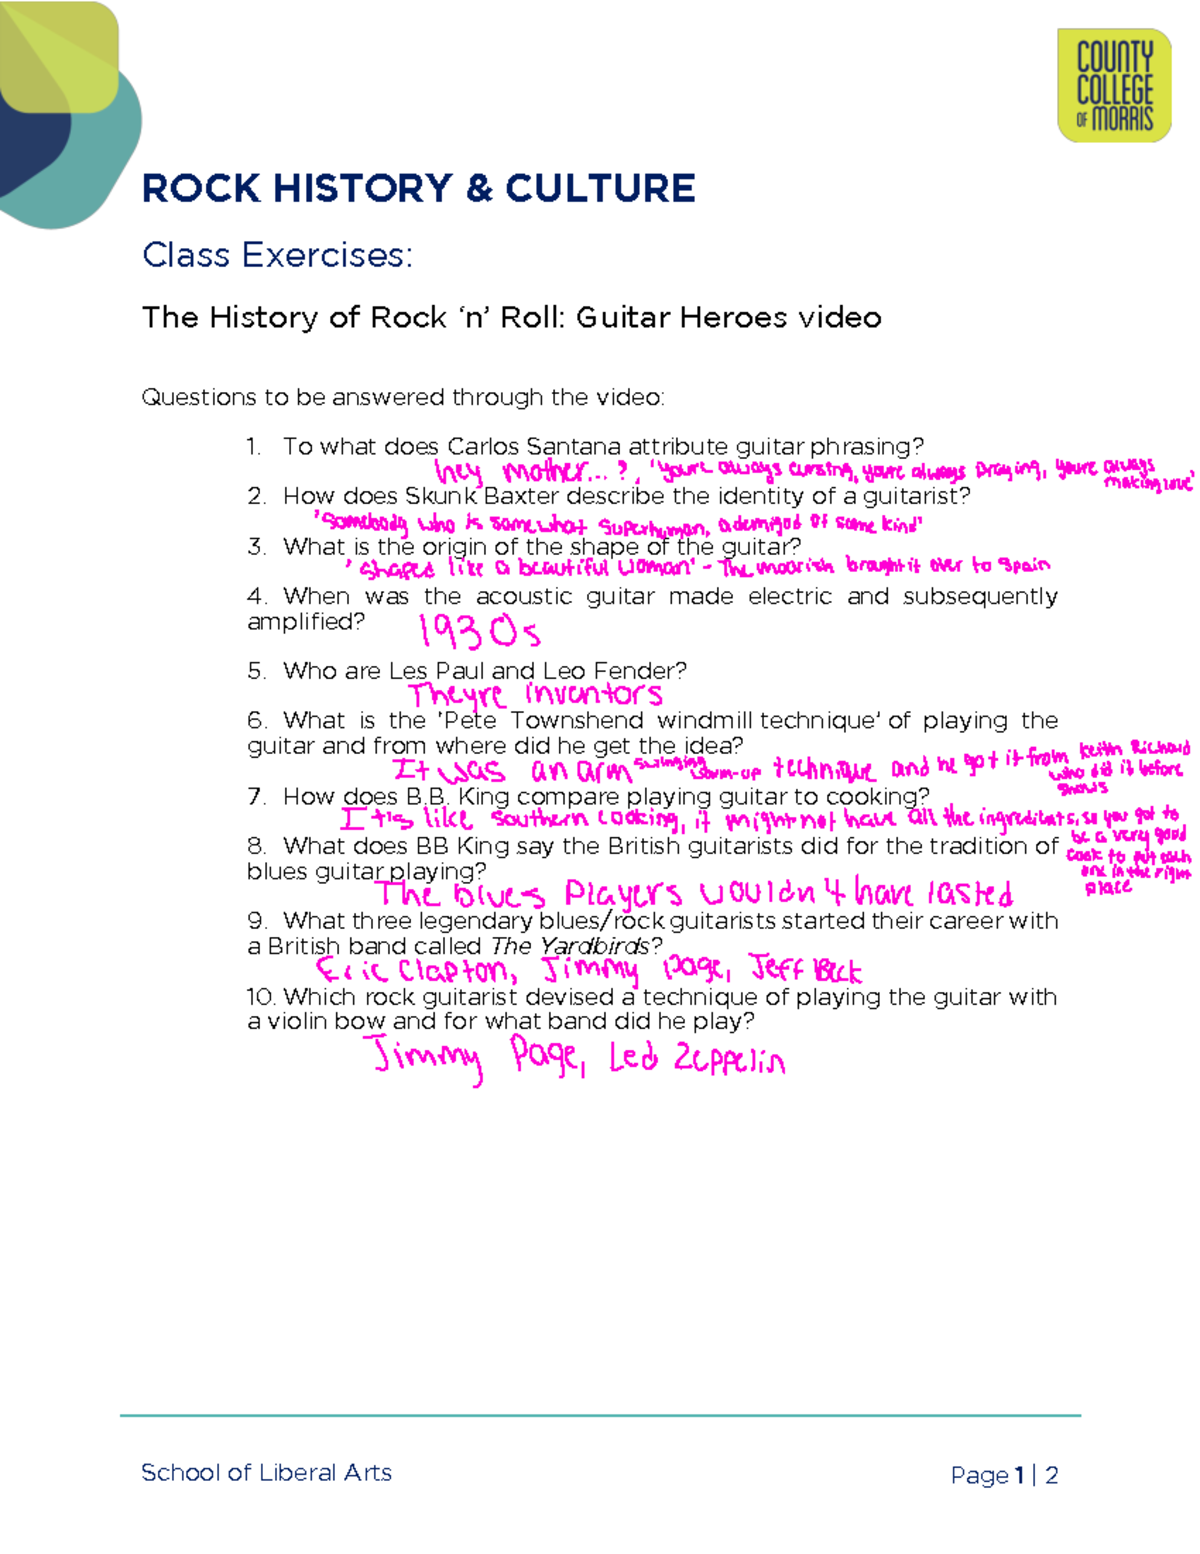 COUNTY
COLLEGE
OF MORRIS
ROCK HISTORY & CULTURE
Class Exercises:
The History of Rock ‘n’ Roll: Guitar Heroes video
Questions to be answered through the video:
1. To what does Carlos Santana attribute guitar phrasing?
hey mother...?, 'youre always cursing, youre always praying, youre always
making love'
2. How does Skunk Baxter describe the identity of a guitarist?
'Somebody who is somewhat superhuman, a demigod of some kind'
3. What is the origin of the shape of the guitar?
'shaped like a beautiful woman' - The moorish brought it over to Spain
4. When was the acoustic guitar made electric and subsequently
amplified?
1930s
5. Who are Les Paul and Leo Fender?
Theyre inventors
6. What is the 'Pete Townshend windmill technique' of playing the
guitar and from where did he get the idea?
It was an arm swinging warm-up technique and he got it from Keith Richard
who did it before
shows
7. How does B.B. King compare playing guitar to cooking?
It's like southern cooking, it might not have all the ingredients, so you got to
be a very good
cook to put each
one in the right
place
8. What does BB King say the British guitarists did for the tradition of
blues guitar playing?
The blues Players wouldn't have lasted
9. What three legendary blues/rock guitarists started their career with
a British band called The Yardbirds?
Eric Clapton, Jimmy Page, Jeff Beck
10. Which rock guitarist devised a technique of playing the guitar with
a violin bow and for what band did he play?
Jimmy Page, Led Zeppelin
School of Liberal Arts
Page 1 | 2